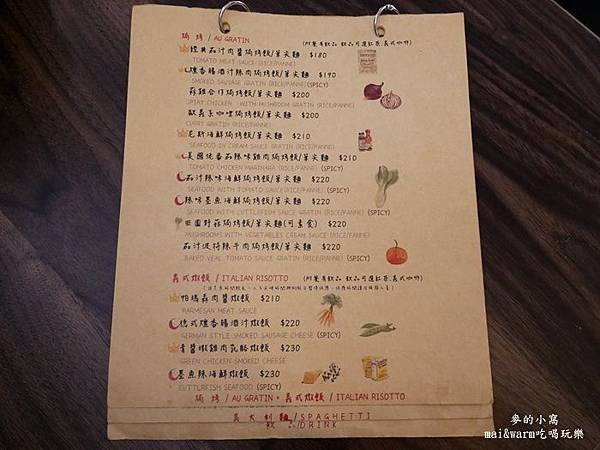 焗烤 / AU GRATIN (附餐有飲品 飲品可選紅茶.義式咖啡)
經典茄汁肉醬焗烤飯/筆尖麵 $180
TOMATO MEAT SAUCE (RICE/PANNE)
燻香腸酒汁辣肉焗烤飯/筆尖麵 $190
SMOKED SAUSAGE GRATIN (RICE/PANNE)(SPICY)
菇雞合作焗烤飯/筆尖麵 $200
SPIAY CHICKEN WITH MUSHROOM GRATIN (RICE/PANNE)
歐氣系咖哩焗烤飯/筆尖麵 $200
CURRY GRATIN (RICE/PANNE)
尼斯海鮮焗烤飯/筆尖麵 $210
SEAFOOD IN CREAM SAUCE GRATIN (RICE/PANNE)
美國後番茄辣味雞肉焗烤飯/筆尖麵 $210
TOMATO CHICKEN MARINARA (RICE/PANNE) (SPICY)
茄汁辣味海鮮焗烤飯/筆尖麵 $220
SEAFOOD WITH TOMATO SAUCE (RICE/PANNE) (SPICY)
辣味墨魚海鮮焗烤飯/筆尖麵 $220
SEAFOOD WITH CUTTLEFISH SAUCE GRATIN (RICE/PANNE) (SPICY)
田園野菇焗烤飯/筆尖麵(可素食) $220
MUSHROOMS WITH VEGETABLES CREAM SAUCE (RICE/PANNE)
茄汁波特辣牛肉焗烤飯/筆尖麵 $220
BAKED VEAL TOMATO SAUCE GRATIN (RICE/PANNE) (SPICY)
義式燉飯 / ITALIAN RISOTTO (附餐有飲品 飲品可選紅茶.義式咖啡)
帕瑪森肉醬燉飯 $210
PARMESAN MEAT SAUCE
德式燻香腸酒汁燉飯 $220
GERMAN STYLE SMOKED SAUSAGE CHEESE (SPICY)
青醬燉雞肉乳酪燉飯 $230
GREEN CHICKEN SMOKED CHEESE
墨魚辣海鮮燉飯 $230
CUTTLRFISH SEAFOOD (SPICY)
焗烤 / AU GRATIN • 義式燉飯 / ITALIAN RISOTTO
義大利麵/SPAGHETTI
飲品/DRINK
麥的小窩
mai&warm吃喝玩樂